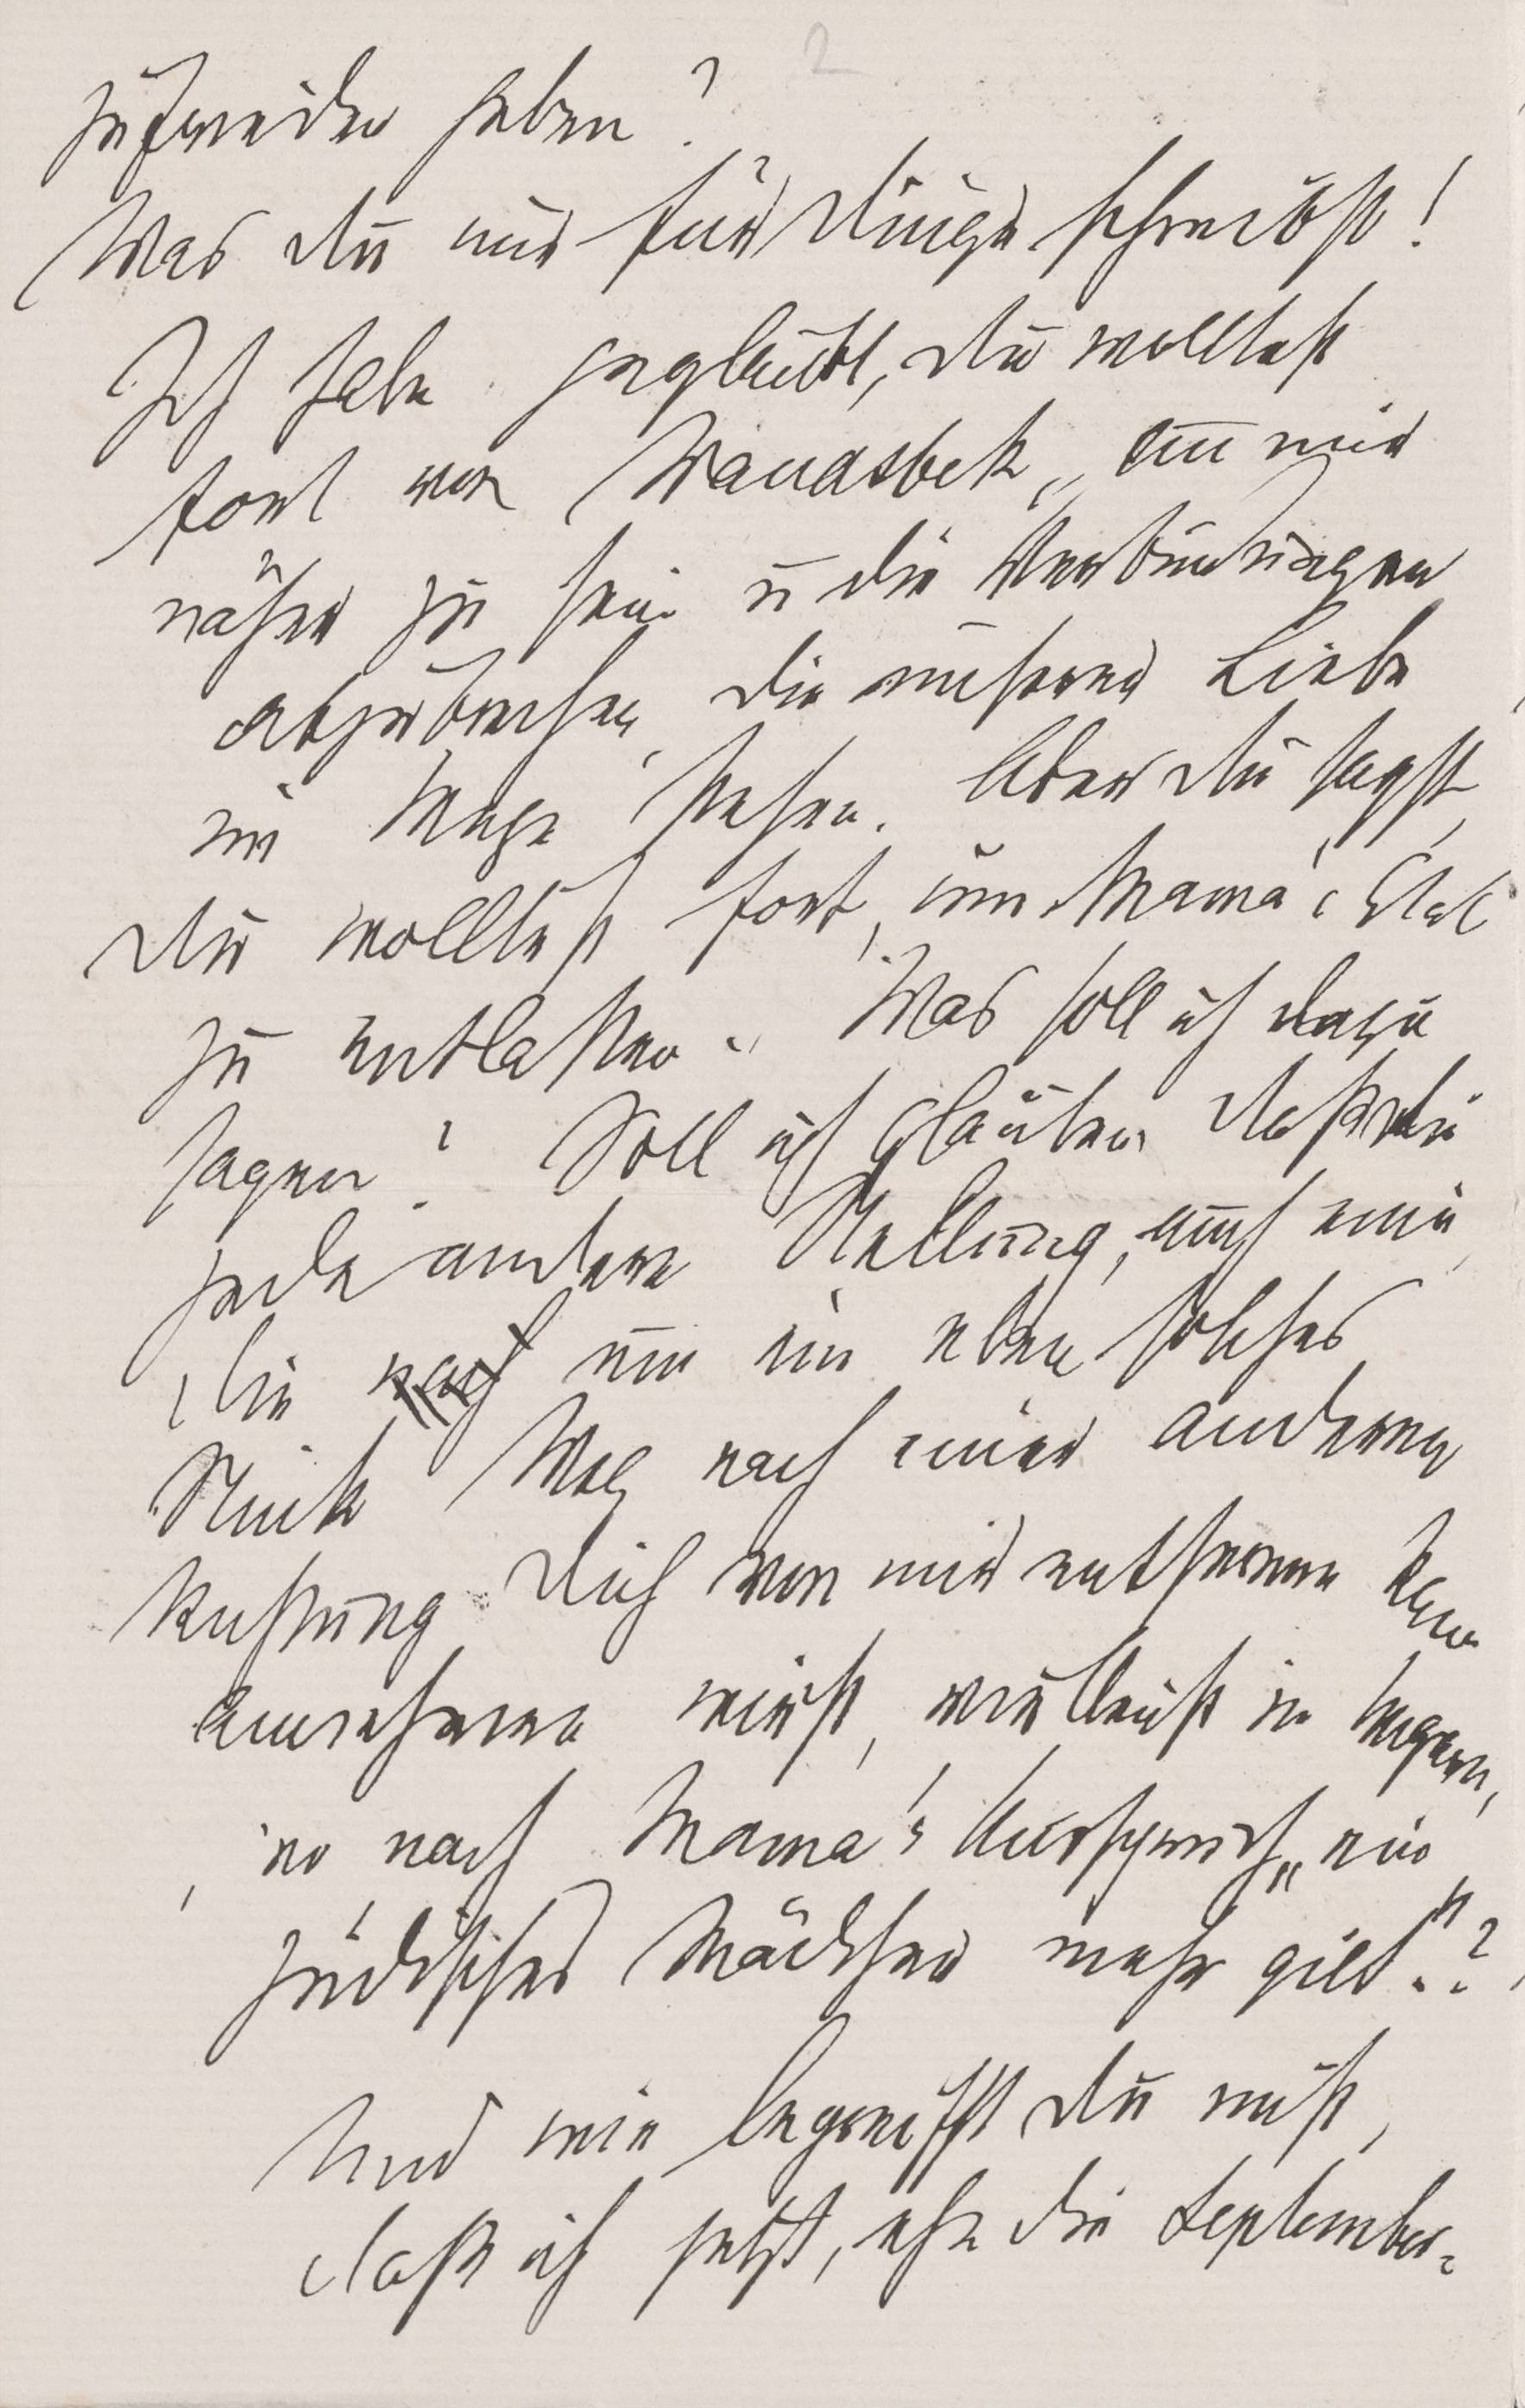 2
zufrieden haben?
Was Du mir für Dinge schreibst!
Ich habe geglaubt, Du wolltest
fort von Wandsbek, um mir
näher zu sein u die Verbindungen
abzubrechen, die unserer Liebe
im Wege stehen. Aber Du sagst,
Du wolltest fort, um Mama's Etat
zu entlasten. Was soll ich dazu
sagen? Soll ich glauben daß Du
jede andere Stellung, auch eine,
die nach um ein eben solches
Stück Weg nach einer anderen
Richtung Dich von mir entfernen kann
annehmen wirst, vielleicht in Ungarn,
wo nach Mama's Ausspruch „ein
jüdisches Mädchen mehr gilt."?
Und wie begreifst Du nicht,
daß ich jetzt, ehe die September-